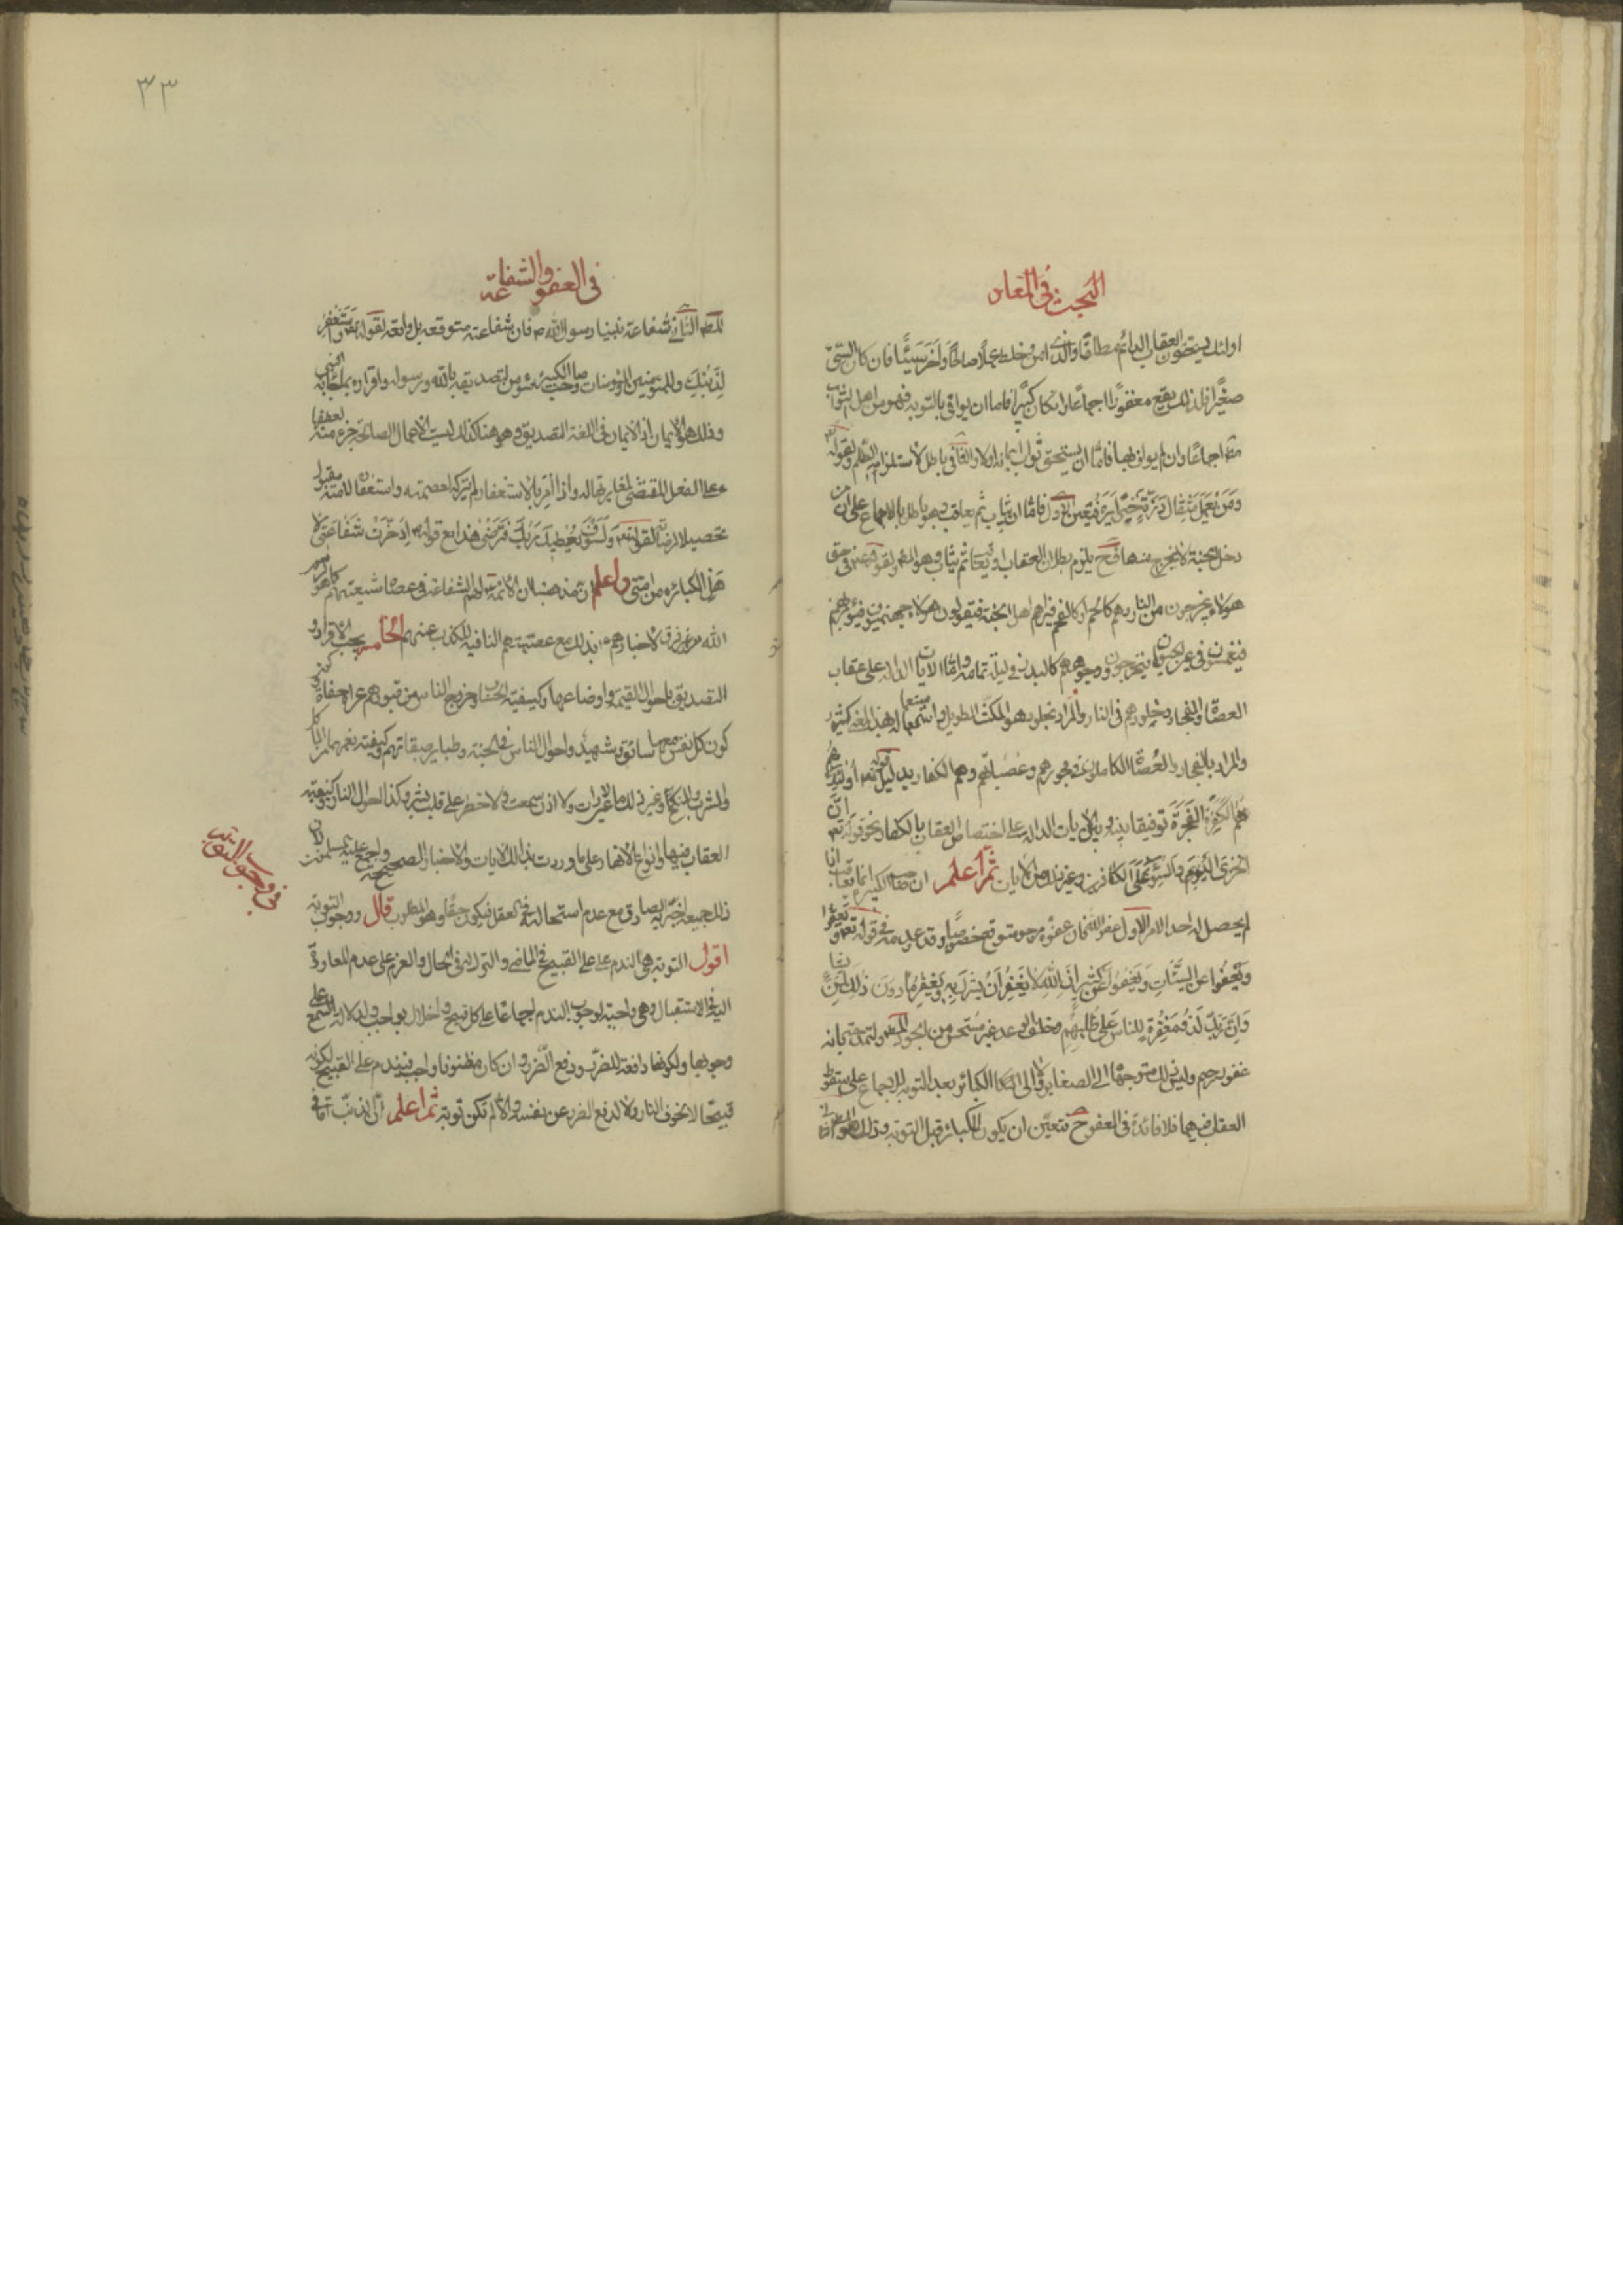 البحث في المعاد
اولئك يستحقون العقاب الدائم مطلقا والذي امن وخلط عملا صالحا واخر سيئا فان كان السيئ
صغيرا فذلك يقع مغفورا اجماعا وان كان كبيرا فاما ان يوافى بالتوبة فهو من اهل الثواب
مطلقا اجماعا وان لم يواف بها فاما ان يستحق ثواب ايمانه اولا والثاني باطل لاستلزامه الظلم ولقوله
ومن يعمل مثقال ذرة خيرا يره فتعين الاول فاما ان يثاب ثم يعاقب وهو باطل بالاجماع على ان من
دخل الجنة لا يخرج منها فح يلزم بطلان العقاب او يعاقب ثم يثاب وهو المط ولقوله في حق
هؤلاء يخرجون من النار وهم كالحمم او كالفحم فيراهم اهل الجنة فيقولون هؤلاء جهنميون فيؤمر بهم
فيغمسون في عين الحيوان فيخرجون ووجوههم كالبدر في ليلة تمامه واما الايات الدالة على عقاب
العصاة والفجار وخلودهم في النار والمراد بخلود هو المكث الطويل واستعماله بهذا المعنى كثير
والمراد بالفجار والعصاة الكاملون في فجورهم وعصيانهم وهم الكفار بدليل قوله تعه اولئك
هم الكفرة الفجرة توفيقا بينه وبين الايات الدالة على اختصاص العقاب بالكفار نحو قوله تع ان
الخزي اليوم والسوء على الكافرين وغير ذلك من الايات ثم اعلم ان صاحب الكبيرة انما يعاقب اذا
لم يحصل له احد الامرين الاول عفو الله فان عفوه مرجو متوقع خصوصا وقد وعد به في قوله تع
ويعفوا عن السيئات ويعفوا عن كثير ان الله لا يغفر ان يشرك به ويغفر ما دون ذلك لمن يشا
وان ربك لذو مغفرة للناس على ظلمهم وخلف الوعد غير مستحسن من الجواد المط ولتمدحه بانه
غفور رحيم وليس ذلك متوجها الى الصغاير ولا الى الكبائر بعد التوبة للاجماع على سقوط
العقاب فيهما فلا فائدة في العفو ح فتعين ان يكون للكبائر قبل التوبة وذلك هو
٣٣
في العفو والشفاعة
المط الثاني شفاعة نبينا رسول الله ص فان شفاعته متوقعة بل واقعة لقوله تع واستغفر
لذنبك وللمؤمنين والمؤمنات وصاحب الكبيرة مؤمن لتصديقه بالله ورسوله واقراره بما جاء به النبي
وذلك هو الايمان اذ الايمان في اللغة التصديق وهو هنا كذلك وليست الاعمال الصالحة جزء منه لعطفها
على الفعل المقتضي لمغايرتها له واذا امر بالاستغفار لم يتركه لعصمته واستغفاره لامته مقبول
تحصيلا لمرضاته لقوله تع ولسوف يعطيك ربك فترضى هذا مع قوله ص ادخرت شفاعتي لا
هل الكبائر من امتي واعلم ان مذهبنا ان الائمة لهم الشفاعة في عصاة شيعتهم كما هو لرسول
الله من غير فرق لاخبارهم بذلك مع عصمتهم النافية للكذب عنهم الخامس يجب الاقرار و
التصديق باحوال القيمة واوضاعها وكيفية الحساب وخروج الناس من قبورهم عراة حفاة و
كون كل نفس معها سائق وشهيد واحوال الناس في الجنة وتباين طبقاتهم وكيفية نعيمها من الماكل
والمشرب والمنكح وغير ذلك مما لا عين رات ولا اذن سمعت ولا خطر على قلب بشر وكذا احوال النار وكيفية
العقاب فيها وانواع الامها على ما وردت بذلك الايات والاخبار الصحيحة واجمع عليه المسلمون لان
ذلك جميعه اخبر به الصادق مع عدم استحالته في العقل فيكون حقا وهو المطلوب قال ووجوب التوبة
اقول التوبة هي الندم على القبيح في الماضي والترك له في الحال والعزم على عدم المعاودة
اليه في الاستقبال وهي واجبة لوجوب الندم اجماعا على كل قبيح واخلال بواجب ولدلالة السمع على
وجوبها ولكونها دافعة للضرر ودفع الضرر وان كان مظنونا واجب فيندم على القبيح لكونه
قبيحا لا لخوف النار ولا لدفع الضرر عن نفسه والا لم تكن توبة ثم اعلم ان الذنب اما في
في وجوب التوبة